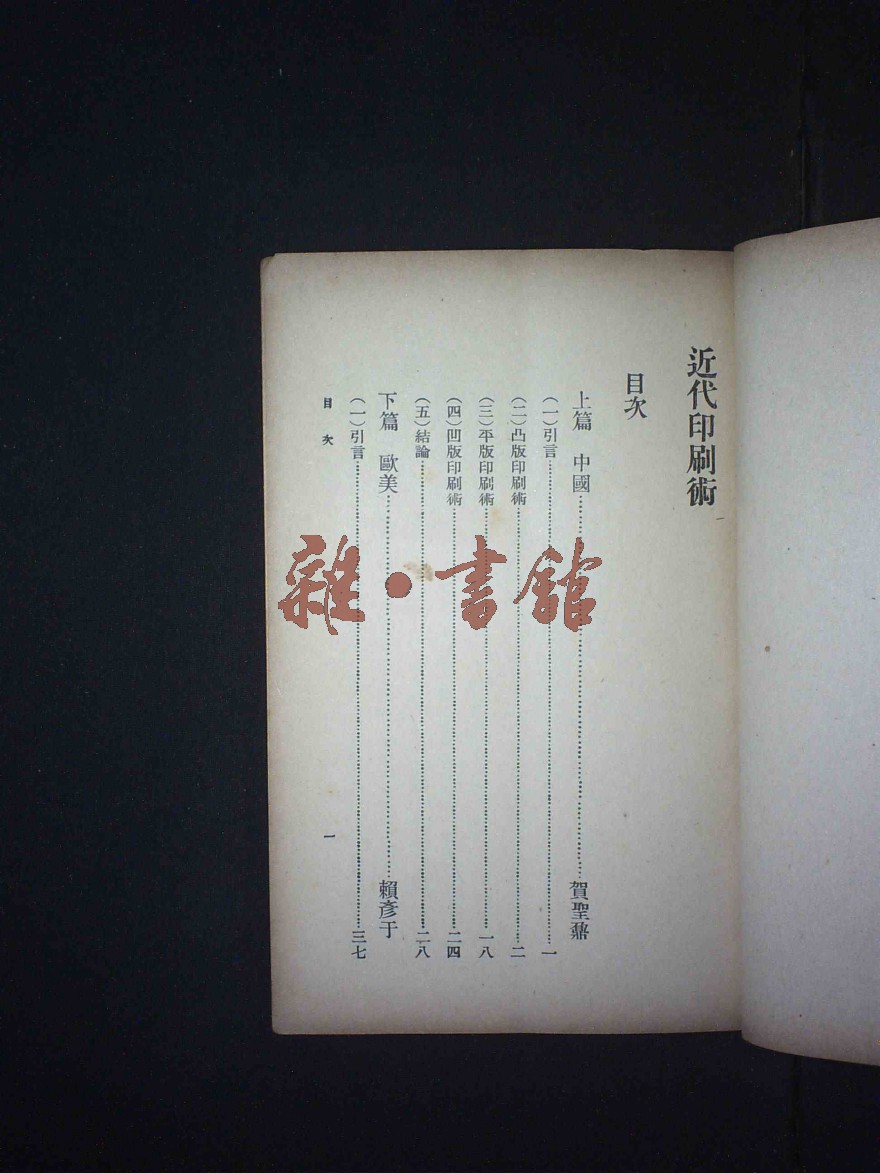 近代印刷術
目次
上篇 中國……賀聖鼐
(一)引言……一
(二)凸版印刷術……二
(三)平版印刷術……一八
(四)凹版印刷術……二四
(五)結論……二八
下篇 歐美……賴彥于
(一)引言……三七
目次 一
雜·書館